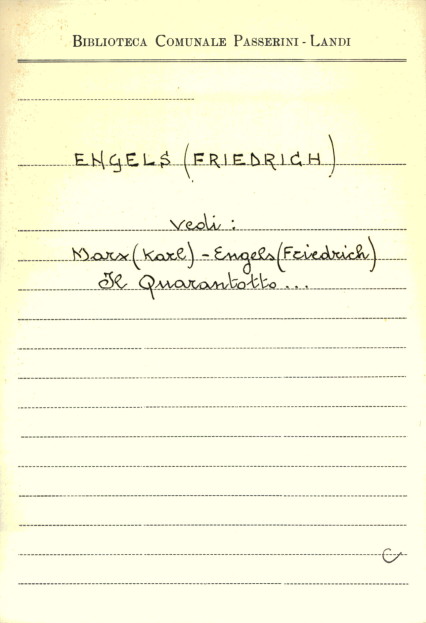 BIBLIOTECA COMUNALE PASSERINI - LANDI
ENGELS (FRIEDRICH)
Vedi :
Marx (Karl) - Engels (Friedrich)
Il Quarantotto ...
C